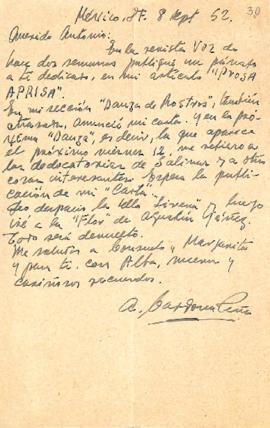 30
México, DF. 8 Sept 52.
Querido Antonio:
En la revista VOZ de
hoy dos semanas publiqué un párrafo
a ti dedicado, en mi artículo "PROSA
APRISA".
En mi sección "Danza de Rostros", también
atrasada, anunció mi carta. Y en la pró-
xima "Danza", es decir, la que aparece
el próximo 12, me refiero a
las dedicatorias de Salinas y a otras
cosas interesantes. Espera la publi-
cación de mi "Carta".
despacio la "Bella Sirena" y luego
iré a la "Flor" de Agustín Yáñez.
Todo será devuelto.
Me saludas a Consuelo y Margarita
y para ti, con Alba, nuevos y
cariñosos recuerdos.
A. Cardona Peña